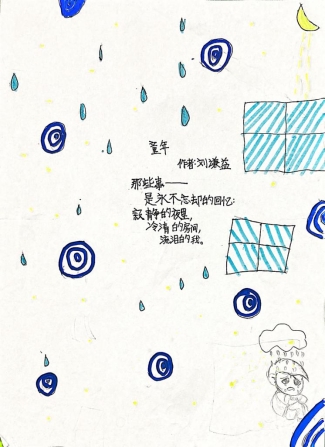 童年
作者:刘谦益
那些事——
是永不忘却的回忆:
寂静的夜里,
冷清的房间,
流泪的我。